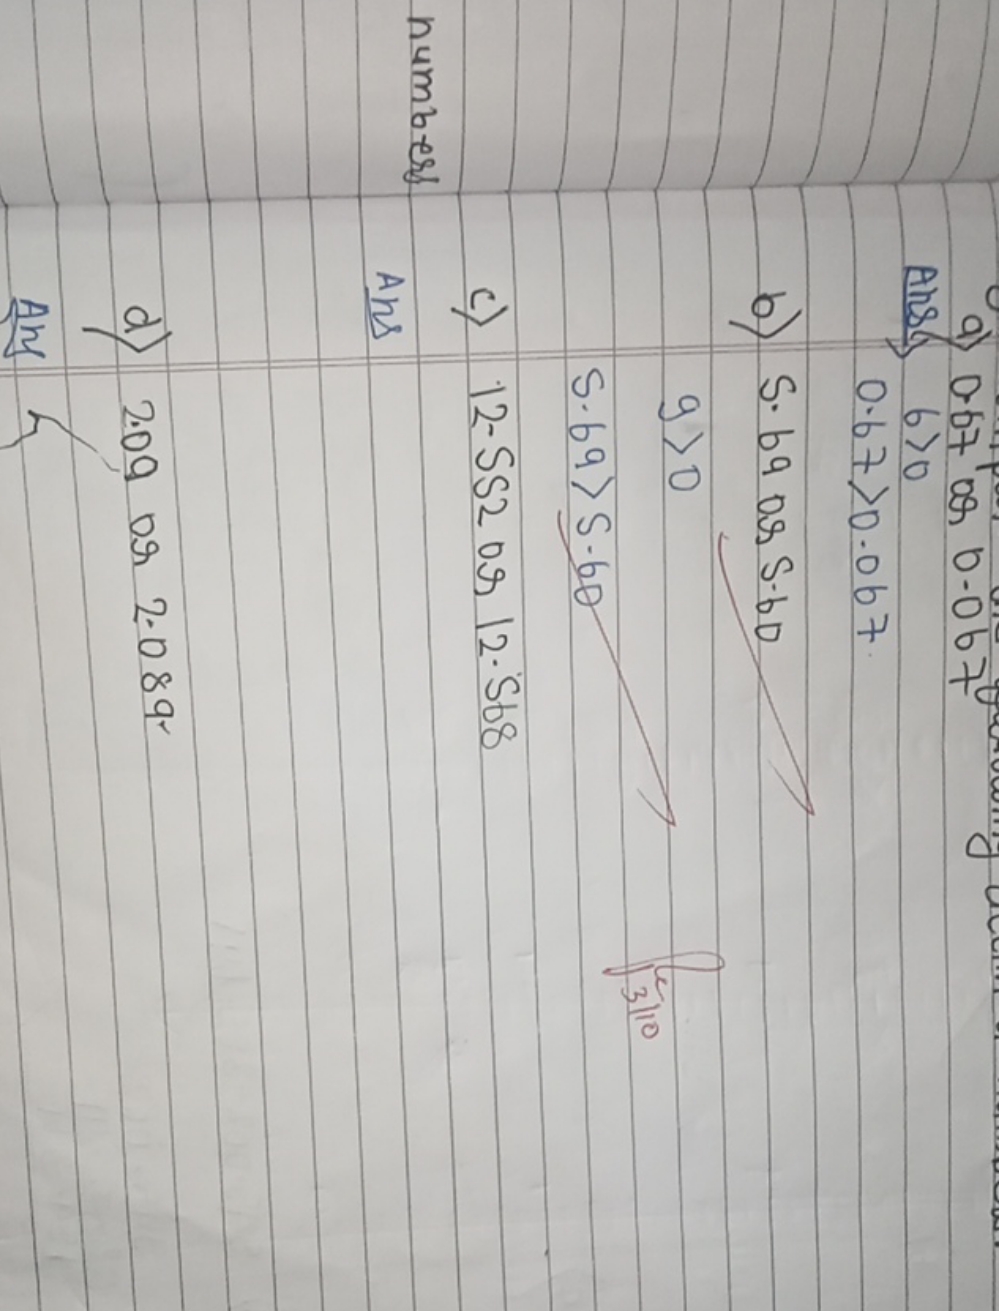 a) 0.67 or 0.067
Ans) 6>0
0.67>0.067.
b) 5.69 or 5.60
9>0
5.69>5.60
3/10
numbers
c) 12.552 or 12.568
Ans
d) 2.09 or 2.089
Ans